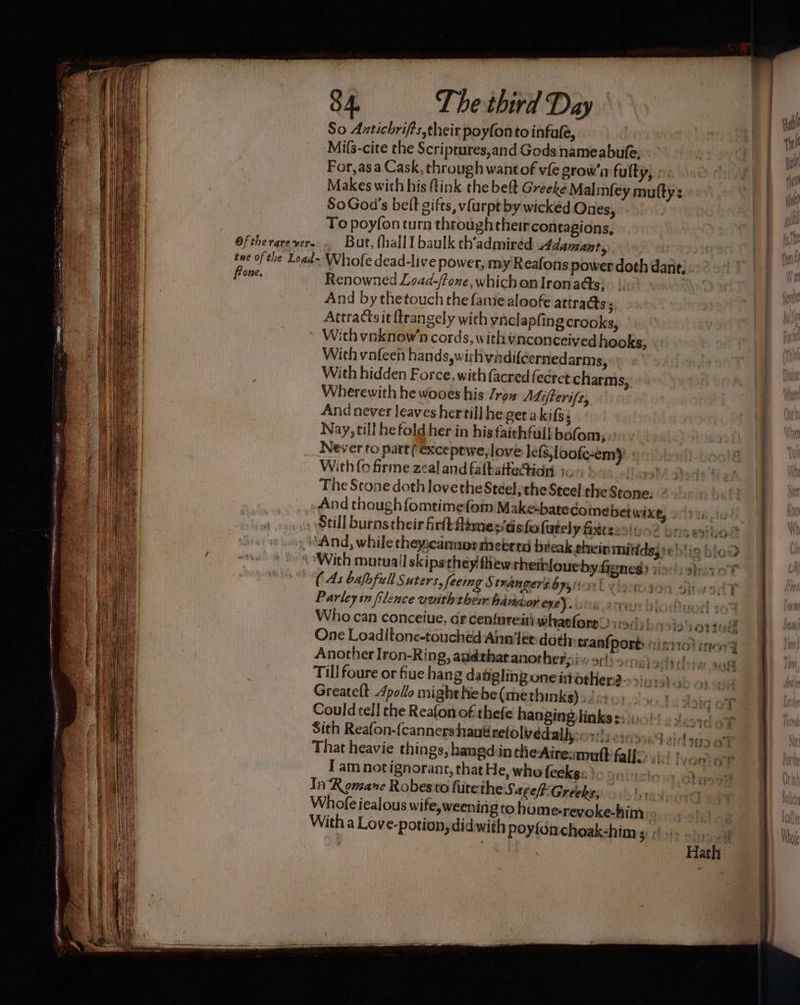 84 The third Day
So Antichriſts, their poyſon to infuſe,
Miſs-cite the Scriptures, and Gods name abuſe.
For, as a Cask, through want of vſe grow'n fuſty,
Makes with his ſtink the beſt Greeke Malmſey muſty:
So God's beſt gifts, vſurpt by wicked Ones,
To poyſon turn through their contagions.
Of the rare ver- But, ſhall I baulk th'admired Adamant,
tue of the Load- Whoſe dead-live power, my Reaſons power doth dant.
ſtone. Renowned Load-ſtone, which on Iron acts,
And by the touch the ſame aloofe attracts;
Attracts it ſtrangely with vnclaſping crooks,
With vnknow'n cords, with vnconceived hooks,
With vnſeen hands, with vndiſcerned arms,
With hidden Force, with ſacred ſecret charms,
Wherewith he wooes his Iron Miſteriſs,
And never leaves her till he get a kiſs;
Nay, till he fold her in his faithfull boſom,
Never to part (except we, love-leſs, looſe-em)
With ſo firme zeal and faſt affection
The Stone doth love the Steel, the Steel the Stone.
And though ſomtime ſom Make-bate come betwixt,
Still burns their firſt flame; 'tis ſo ſurely fixt:
And, while they cannot meet to break their minds,
With mutuall skips they ſhew their loue by ſignes
(As baſhfull Suters, ſeeing Strangers by,
Parley in ſilence with their hand or eye).
Who can conceiue, or cenſure in what ſort
One Loadſtone-touched Annlet doth tranſport
Another Iron-Ring, and that another,
Till foure or fiue hang dangling one in other?
Greateſt Apollo might he be (me thinks)
Could tell the Reaſon of theſe hanging links:
Sith Reaſon-ſcanners haue reſolved all,
That heavie things, hang'd in the Aire, muſt fall.
I am not ignorant, that He, who ſeeks
In Romane Robes to ſute the Sageſt Greeks,
Whoſe iealous wife, weening to home-revoke-him
With a Love-potion, did with poyſon choak-him;
Hath